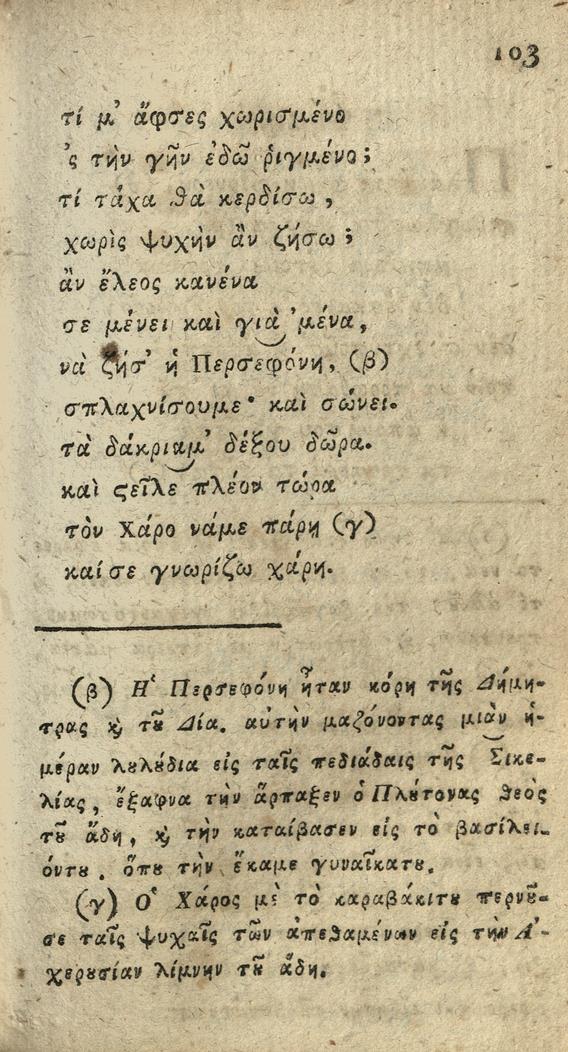 103
τί μ' ἄφσες χωρισμένο
'ς τὴν γῆν ἐδῶ ῥιγμένο;
τί τάχα θὰ κερδίσω,
χωρὶς ψυχὴν ἂν ζήσω;
ἂν ἔλεος κανένα
σε μένει καὶ γιὰ 'μένα,
νὰ ζήσ' ἡ Περσεφόνη, (β)
σπλαχνίσουμε· καὶ σώνει.
τὰ δάκριαμ' δέξου δῶρα.
καὶ ϛεῖλε πλέον τώρα
τὸν Χάρο νάμε πάρῃ (γ)
καί σε γνωρίζω χάρη.
(β) Ἡ Περσεφόνη ἦταν κόρη τῆς Δήμη-
τρας ϗ τȣ͂ Δία. αὐτὴν μαζόνοντας μιὰν ἡ-
μέραν λȣλȣ́δια εἰς ταῖς πεδιάδαις τῆς Σικε-
λίας, ἔξαφνα τὴν ἅρπαξεν ὁ Πλȣ́τονας θεὸς
τȣ͂ ἅδη, ϗ τὴν καταίβασεν εἰς τὸ βασίλει-
όντȣ. ὅπȣ τὴν ἔκαμε γυναῖκατȣ.
(γ) Ὁ Χάρος μὲ τὸ καραβάκιτȣ περνȣ͂-
σε ταῖς ψυχαῖς τῶν ἀπεθαμένων εἰς τὴν Ἀ-
χερȣσίαν λίμνην τȣ͂ ἅδη.